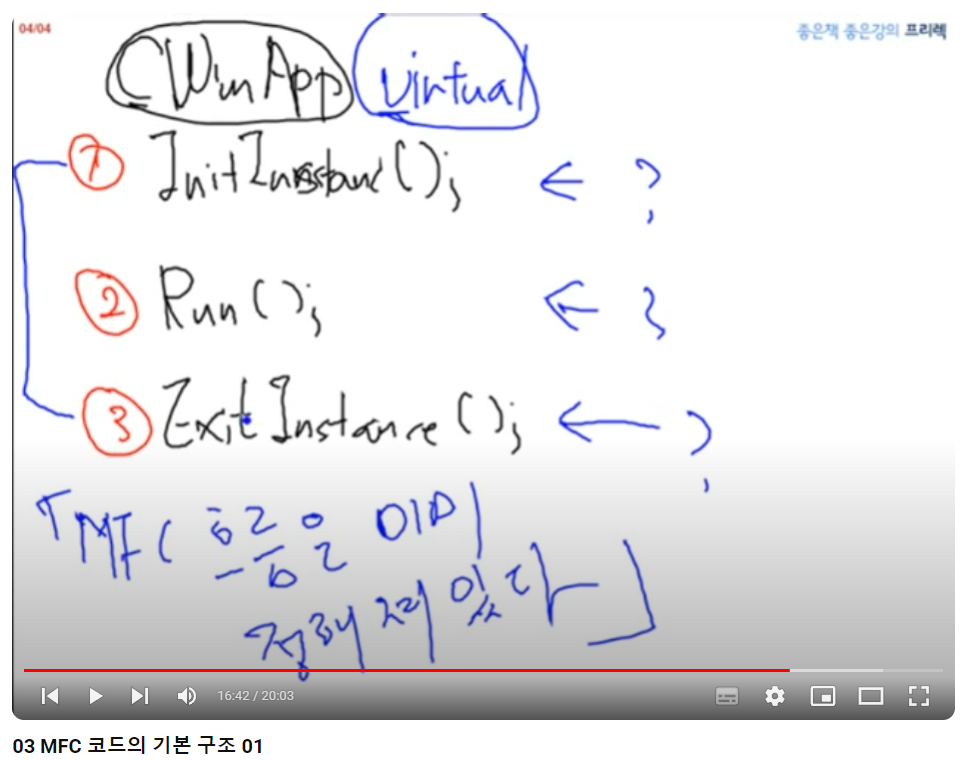 04/04
좋은책 좋은강의 프리렉
CWinApp virtual
① InitInstanc();  ← ?
② Run();  ← ?
③ ExitInstance();  ← ?
「MFC 흐름은 이미
정해져 있다」
16:42 / 20:03
03 MFC 코드의 기본 구조 01